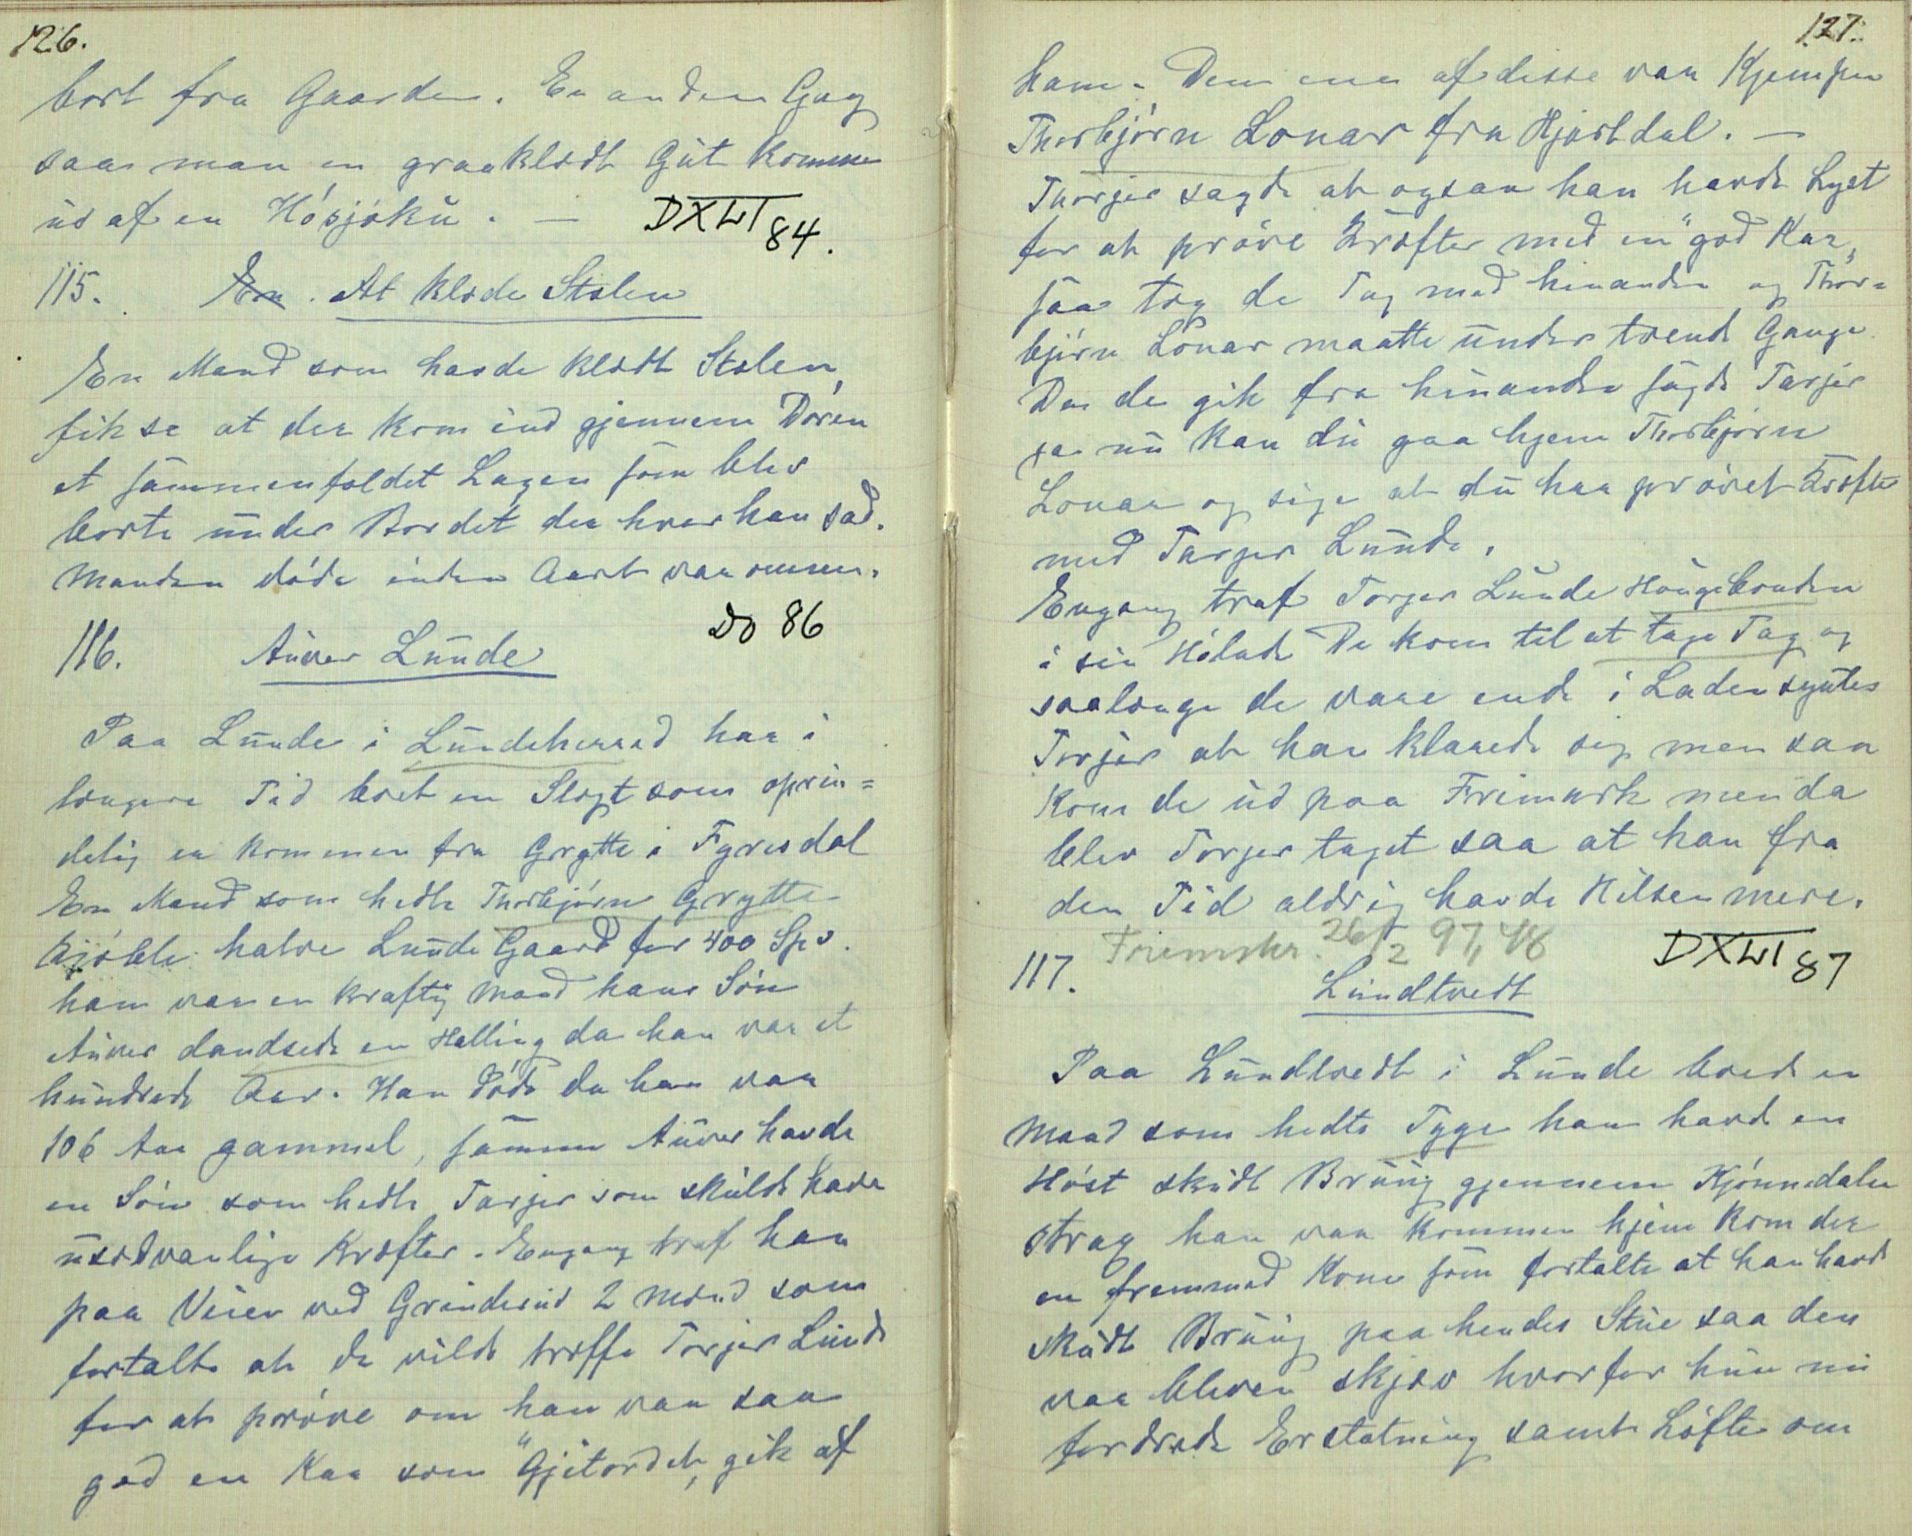 126.
bort fra Gaarden. En anden Gag
saa man en graaklædt Gut komme
ud af en Høsjøku. —
DXLI 84.
115. En. At klæde Stolen
En Mand som havde klædt Stolen
fik se at der kom ind gjennem Døren
et sammenfoldet Lagen som blev
borte under Bordet der hvor han sad.
Manden døde inden Aaret var omme.
Do 86
116. Auver Lunde
Paa Lunde i Lundeherred har i
længere Tid boet en Slægt som oprin=
delig er kommen fra Grytte i Fyresdal
En Mand som hedte Thorbjørn Grytte
kjøbte halve Lunde Gaard for 400 Spd.
han var en kraftig Mand hans Søn
Auver dandsede en Halling da han var et
hundrede Aar. Han døde da han var
106 Aar gammel, samme Auver havde
en Søn som hedte Tarjer som skulde have
usædvanlige Kræfter. Engang traf han
paa Veien ved Grinderud 2 Mænd som
fortalte at de vilde træffe Torjer Lunde
for at prøve om han var saa
god en Kar som "Gjetordet" gik af
127.
ham. Den ene af disse var Kjempen
Thorbjørn Lonar fra Hjartdal. —
Thorjer sagde at ogsaa han havde Lyst
for at prøve Kræfter med en "god Kar"
saa tog de Tag med hinanden og Thor=
bjørn Lonar maatte under trende Gange
Da de gik fra hinanden sagde Tarjer
ja nu kan du gaa hjem Thorbjørn
Lonar og sige at du har prøvet Kræfte
med Tarjer Lunde.
Engang traf Torjer Lunde Haugebonden
i sin Hølade De kom til at tage Tag og
saalænge de vare inde i Laden syntes
Torjer at han klarede sig men saa
kom de ud paa Frimark men da
blev Torjer taget saa at han fra
den Tid aldrig havde Hilsen mere.
Friemskr. 26/2 97, 48
DXLI 87
117. Lundtvedt
Paa Lundtvedt i Lunde boed en
Mand som hedte Tyge han havde en
Høst skudt Bruug gjennem Kjønnedalen
strax han var kommen hjem kom der
en fremmed Kone som fortalte at han havde
skudt Bruug paa hendes Stue saa den
var bleven skjæv hvorfor hun nu
fordrede Erstatning samt Løfte om